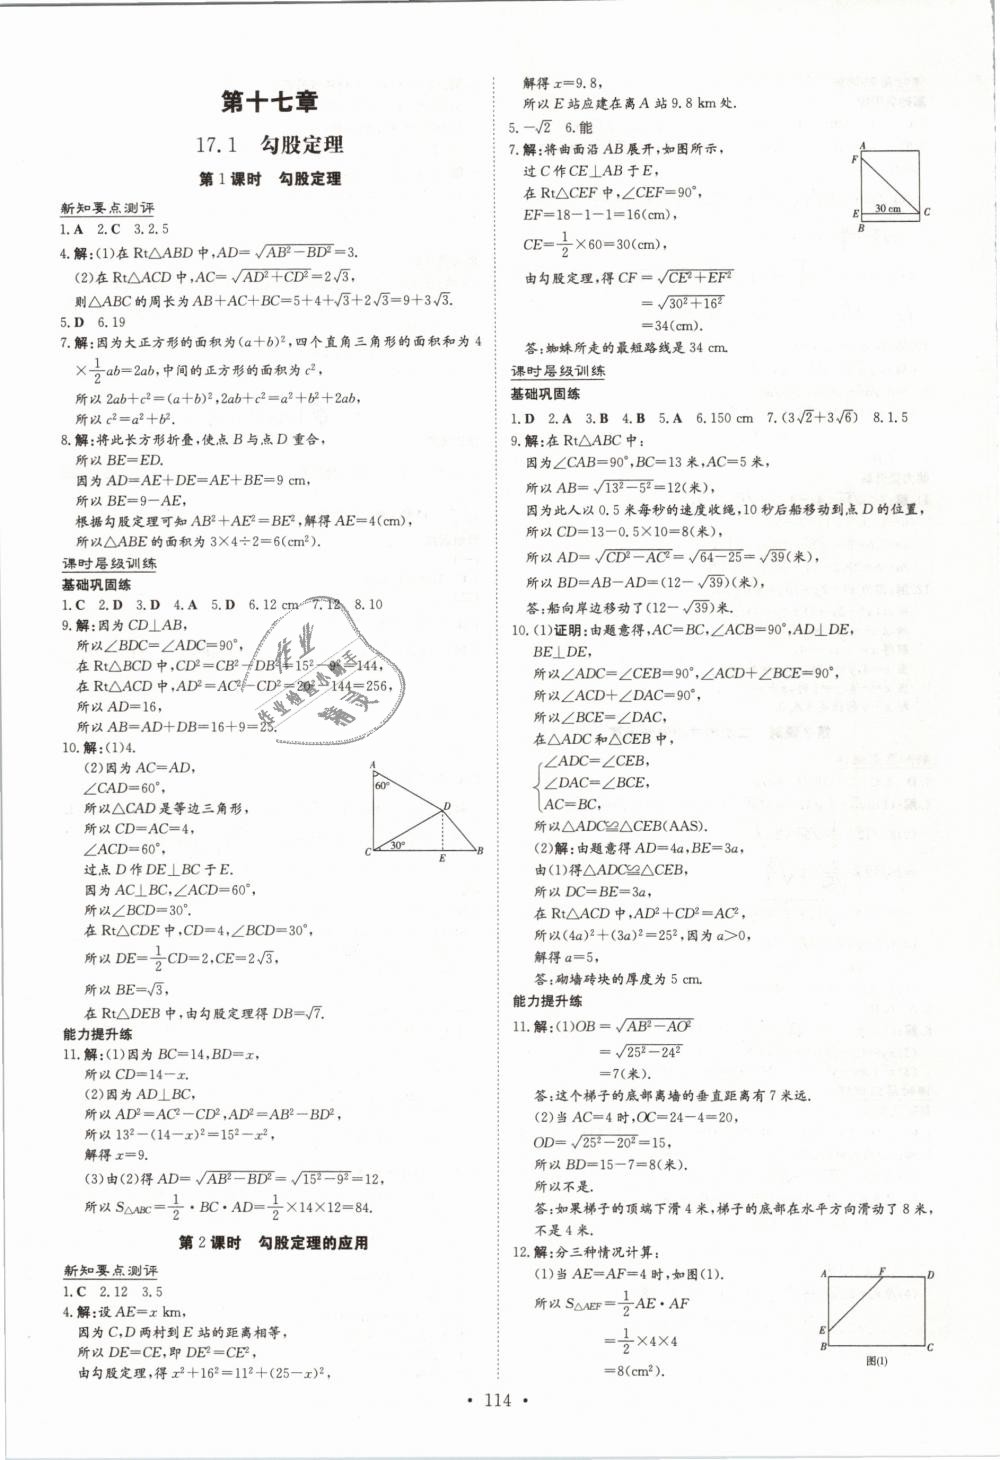 第十七章
17.1 勾股定理
第1课时 勾股定理
新知要点测评
1.A 2.C 3.2.5
4.解:(1)在Rt△ABD中,AD=√(AB²−BD²)=3.
(2)在Rt△ACD中,AC=√(AD²+CD²)=2√3,
则△ABC的周长为AB+AC+BC=5+4+√3+2√3=9+3√3.
5.D 6.19
7.解:因为大正方形的面积为(a+b)²,四个直角三角形的面积和为4
×1/2ab=2ab,中间的正方形的面积为c²,
所以2ab+c²=(a+b)²,2ab+c²=a²+b²+2ab,
所以c²=a²+b².
8.解:将此长方形折叠,使点B与点D重合,
所以BE=ED.
因为AD=AE+DE=AE+BE=9 cm,
所以BE=9−AE,
根据勾股定理可知AB²+AE²=BE²,解得AE=4(cm),
所以△ABE的面积为3×4÷2=6(cm²).
课时层级训练
基础巩固练
1.C 2.D 3.D 4.A 5.D 6.12 cm 7.12 8.10
9.解:因为CD⊥AB,
所以∠BDC=∠ADC=90°,
在Rt△BCD中,CD²=CB²−DB²=15²−9²=144,
在Rt△ACD中,AD²=AC²−CD²=20²−144=256,
所以AD=16,
所以AB=AD+DB=16+9=25.
10.解:(1)4.
(2)因为AC=AD,
∠CAD=60°,
所以△CAD是等边三角形,
所以CD=AC=4,
∠ACD=60°,
过点D作DE⊥BC于E.
因为AC⊥BC,∠ACD=60°,
所以∠BCD=30°.
在Rt△CDE中,CD=4,∠BCD=30°,
所以DE=1/2CD=2,CE=2√3,
所以BE=√3,
在Rt△DEB中,由勾股定理得DB=√7.
A
60°
D
C
30°
E
B
作业
作业检查小助手
精灵
能力提升练
11.解:(1)因为BC=14,BD=x,
所以CD=14−x.
(2)因为AD⊥BC,
所以AD²=AC²−CD²,AD²=AB²−BD²,
所以13²−(14−x)²=15²−x²,
解得x=9.
(3)由(2)得AD=√(AB²−BD²)=√(15²−9²)=12,
所以S△ABC=1/2·BC·AD=1/2×14×12=84.
第2课时 勾股定理的应用
新知要点测评
1.C 2.12 3.5
4.解:设AE=x km,
因为C,D两村到E站的距离相等,
所以DE=CE,即DE²=CE²,
由勾股定理,得x²+16²=11²+(25−x)²,
解得x=9.8,
所以E站应建在离A站9.8 km处.
5.−√2 6.能
7.解:将曲面沿AB展开,如图所示,
过C作CE⊥AB于E,
在Rt△CEF中,∠CEF=90°,
EF=18−1−1=16(cm),
CE=1/2×60=30(cm),
由勾股定理,得CF=√(CE²+EF²)
=√(30²+16²)
=34(cm).
答:蜘蛛所走的最短路线是34 cm.
A
F
E
30 cm
C
B
课时层级训练
基础巩固练
1.D 2.A 3.B 4.B 5.A 6.150 cm 7.(3√2+3√6) 8.1.5
9.解:在Rt△ABC中:
因为∠CAB=90°,BC=13米,AC=5米,
所以AB=√(13²−5²)=12(米),
因为此人以0.5米每秒的速度收绳,10秒后船移动到点D的位置,
所以CD=13−0.5×10=8(米),
所以AD=√(CD²−AC²)=√(64−25)=√39(米),
所以BD=AB−AD=(12−√39)(米),
答:船向岸边移动了(12−√39)米.
10.(1)证明:由题意得,AC=BC,∠ACB=90°,AD⊥DE,
BE⊥DE,
所以∠ADC=∠CEB=90°,∠ACD+∠BCE=90°,
所以∠ACD+∠DAC=90°,
所以∠BCE=∠DAC,
在△ADC和△CEB中,
{∠ADC=∠CEB,
∠DAC=∠BCE,
AC=BC,
所以△ADC≌△CEB(AAS).
(2)解:由题意得AD=4a,BE=3a,
由(1)得△ADC≌△CEB,
所以DC=BE=3a,
在Rt△ACD中,AD²+CD²=AC²,
所以(4a)²+(3a)²=25²,因为a>0,
解得a=5,
答:砌墙砖块的厚度为5 cm.
能力提升练
11.解:(1)OB=√(AB²−AO²)
=√(25²−24²)
=7(米).
答:这个梯子的底部离墙的垂直距离有7米远.
(2)当AC=4时,OC=24−4=20,
OD=√(25²−20²)=15,
所以BD=15−7=8(米).
所以不是.
答:如果梯子的顶端下滑4米,梯子的底部在水平方向滑动了8米,
不是4米.
12.解:分三种情况计算:
(1)当AE=AF=4时,如图(1).
所以S△AEF=1/2AE·AF
=1/2×4×4
=8(cm²).
A
F
D
E
B
C
图(1)
• 114 •